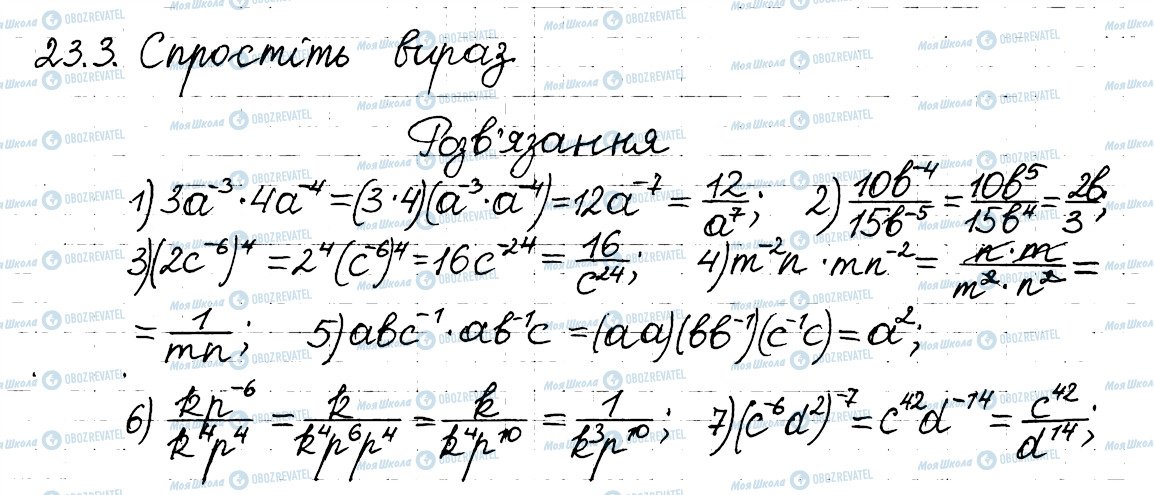 23.3. Спростіть вираз.
Розв'язання
1) 3a⁻³·4a⁻⁴=(3·4)(a⁻³·a⁻⁴)=12a⁻⁷ = 12/a⁷; 2) 10b⁻⁴/15b⁻⁵ = 10b⁵/15b⁴ = 2b/3;
3) (2c⁻⁶)⁴ = 2⁴(c⁻⁶)⁴ = 16c⁻²⁴ = 16/c²⁴; 4) m⁻²n · mn⁻² = n·m/m²·n² =
= 1/mn; 5) abc⁻¹·ab⁻¹c = (aa)(bb⁻¹)(c⁻¹c) = a²;
6) kp⁻⁶/k⁴p⁴ = k/k⁴p⁶p⁴ = k/k⁴p¹⁰ = 1/k³p¹⁰; 7) (c⁻⁶d²)⁻⁷ = c⁴²d⁻¹⁴ = c⁴²/d¹⁴;
Моя Школа OBOZREVATEL